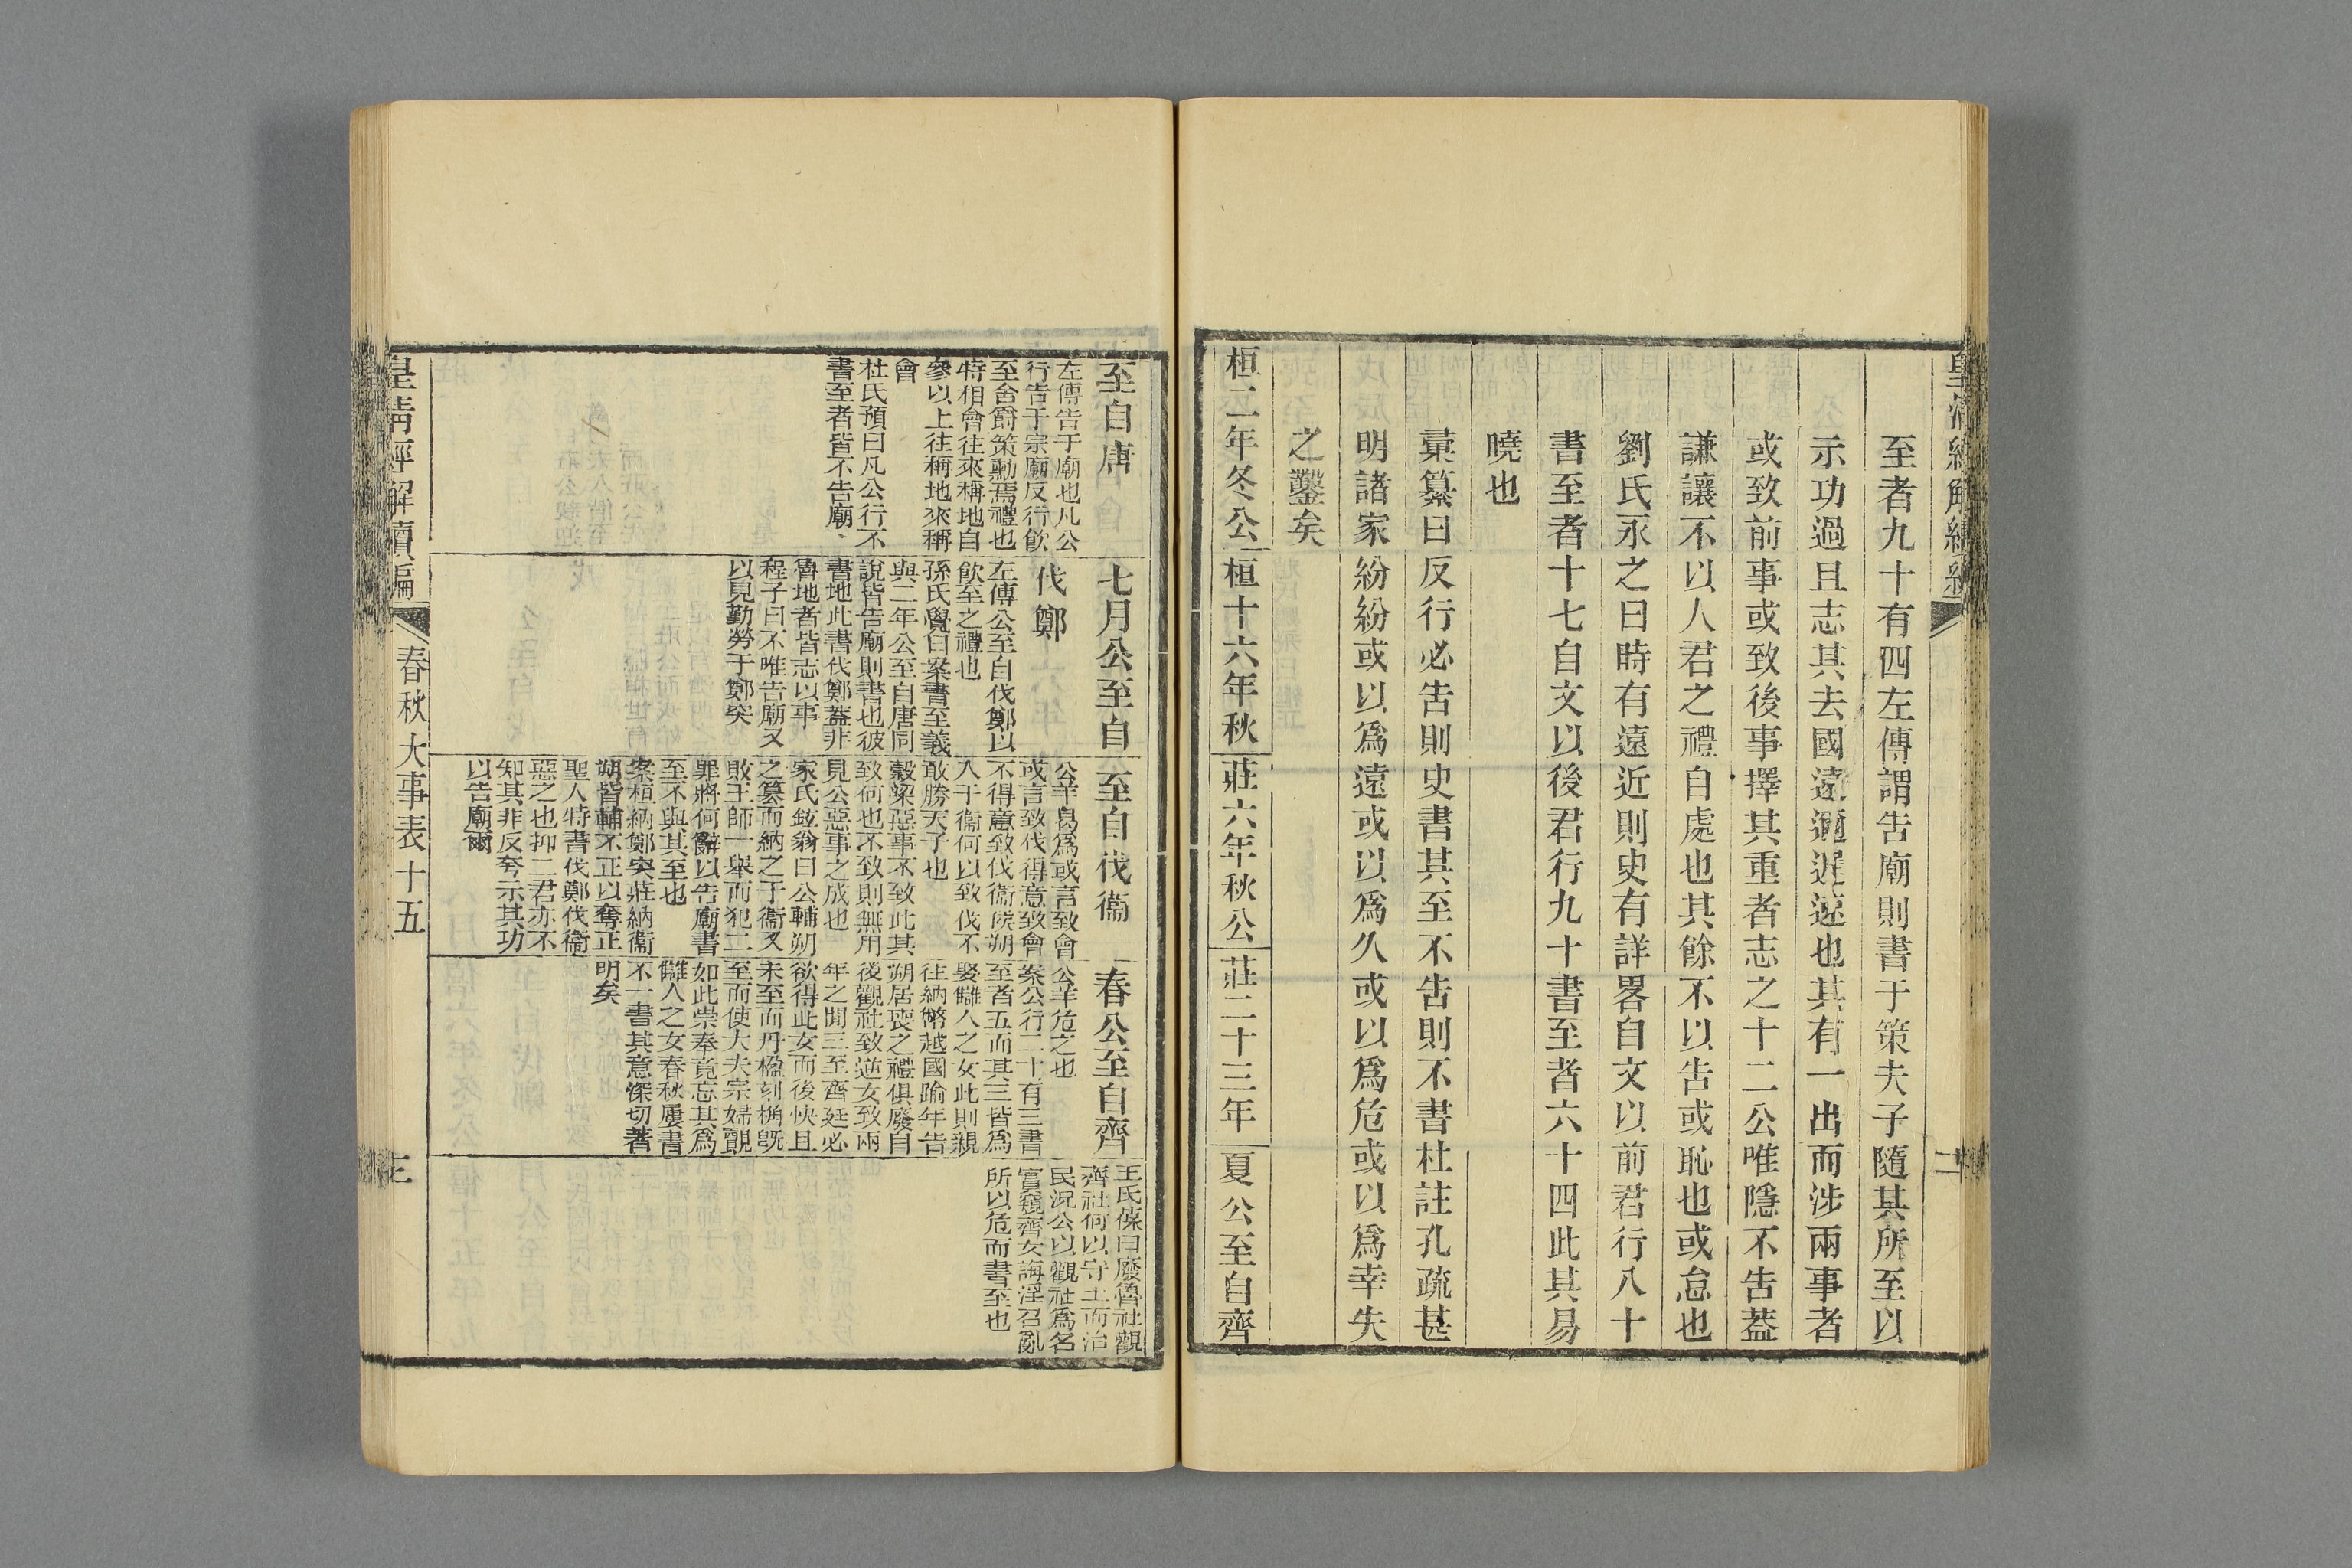 皇清經解續編
二
至者九十有四左傳謂告廟則書于策夫子隨其所至以
示功過且志其去國遠邇遲速也其有一出而涉兩事者
或致前事或致後事擇其重者志之十二公唯隱不告蓋
謙讓不以人君之禮自處也其餘不以告或恥也或怠也
劉氏永之曰時有遠近則史有詳畧自文以前君行八十
書至者十七自文以後君行九十書至者六十四此其易
曉也
彙纂曰反行必告則史書其至不告則不書杜註孔疏甚
明諸家紛紛或以爲遠或以爲久或以爲危或以爲幸失
之鑿矣
桓二年冬公
桓十六年秋
莊六年秋公
莊二十三年
夏公至自齊
至自唐
左傳告于廟也凡公
行告于宗廟反行飲
至舍爵策勳焉禮也
特相會往來稱地自
參以上往稱地來稱
會
杜氏預曰凡公行不
書至者皆不告廟
七月公至自
伐鄭
左傳公至自伐鄭以
飲至之禮也
孫氏覺曰案書至義
與二年公至自唐同
說皆告廟則書也彼
書地此書伐鄭蓋非
魯地者皆志以事
程子曰不唯告廟又
以見勤勞于鄭突
至自伐衞
公羊曷爲或言致會
或言致伐得意致會
不得意致伐衞侯朔
入于衞何以致伐不
敢勝天子也
穀梁惡事不致此其
致何也不致則無用
見公惡事之成也
家氏鉉翁曰公輔朔
之篡而納之于衞又
敗王師一舉而犯二
罪將何辭以告廟書
至不與其至也
案桓納鄭突莊納衞
朔皆輔不正以奪正
聖人特書伐鄭伐衞
惡之也抑二君亦不
知其非反夸示其功
以告廟爾
春公至自齊
公羊危之也
案公行二十有三書
至者五而其三皆爲
娶讎人之女此則親
往納幣越國踰年告
朔居喪之禮俱廢自
後觀社致逆女致兩
年之間三至齊廷必
欲得此女而後快且
未至而丹楹刻桷旣
至而使大夫宗婦覿
如此崇奉竟忘其爲
讎人之女春秋屢書
不一書其意深切著
明矣
王氏葆曰廢魯社觀
齊社何以守土而治
民況公以觀社爲名
實窺齊女誨淫召亂
所以危而書至也
皇淸經解續編
春秋大事表十五
三